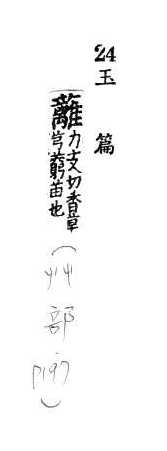 24
玉篇
蘺力支切香草
芎藭苗也
(艸部 P197)